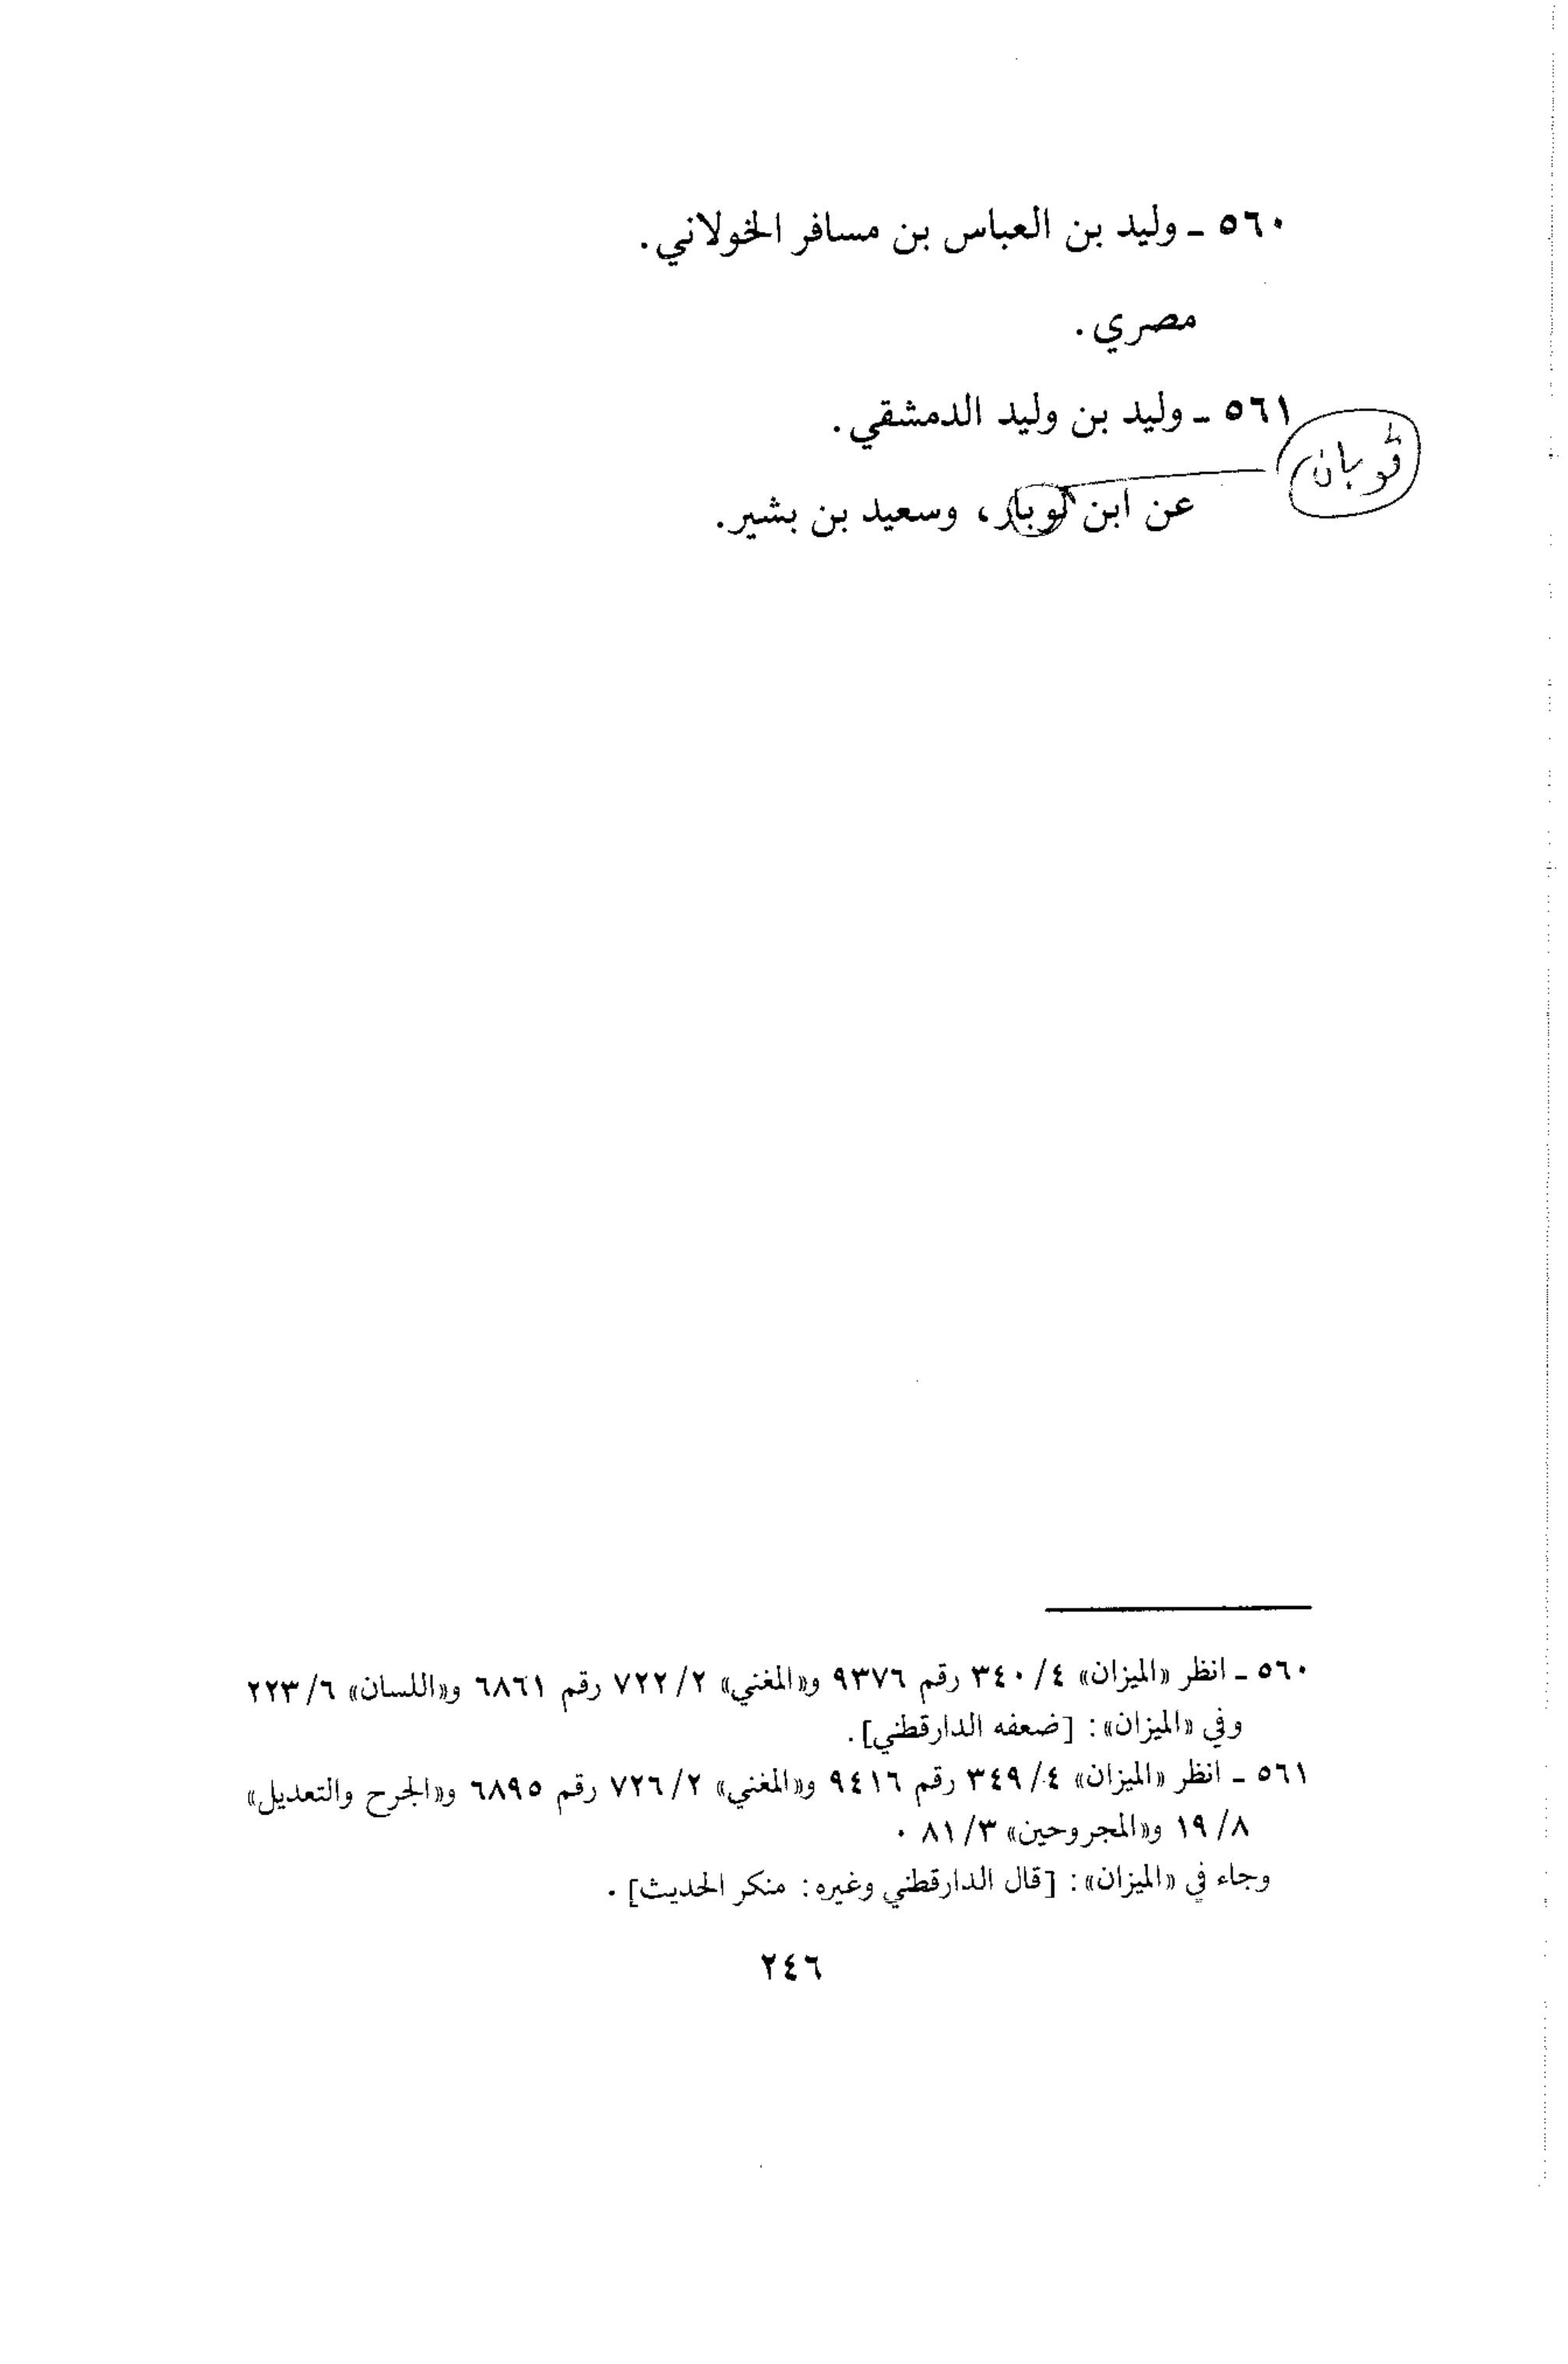 ٥٦٠ ـ وليد بن العباس بن مسافر الخولاني.
مصري.
٥٦١ ـ وليد بن وليد الدمشقي.
ثوبان
عن ابن لوبار، وسعيد بن بشير.
٥٦٠ ـ انظر «الميزان» ٤/ ٣٤٠ رقم ٩٣٧٦ و«المغني» ٢/ ٧٢٢ رقم ٦٨٦١ و«اللسان» ٦/ ٢٢٣
وفي «الميزان»: [ضعفه الدارقطني].
٥٦١ ـ انظر «الميزان» ٤/ ٣٤٩ رقم ٩٤١٦ و«المغني» ٢/ ٧٢٦ رقم ٦٨٩٥ و«الجرح والتعديل»
٨/ ١٩ و«المجروحين» ٣/ ٨١ .
وجاء في «الميزان»: [قال الدارقطني وغيره: منكر الحديث] .
٢٤٦